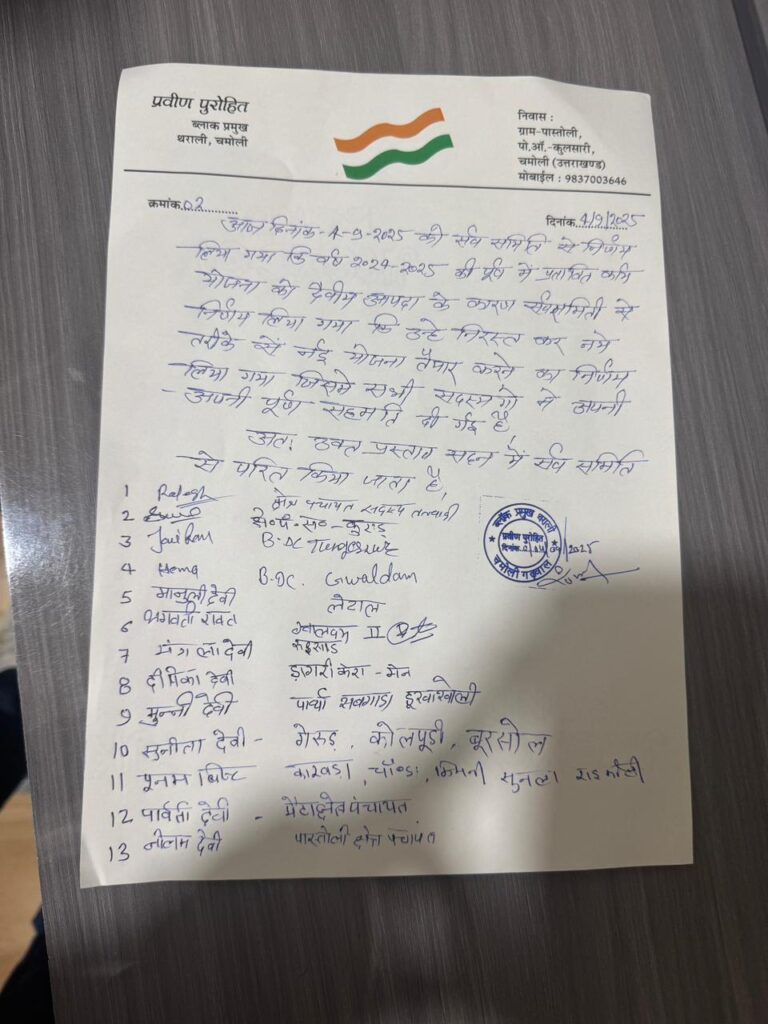 प्रवीण पुरोहित
ब्लाक प्रमुख
थराली, चमोली
निवास :
ग्राम-पास्तोली,
पो.ऑ.-कुलसारी,
चमोली (उत्तराखण्ड)
मोबाईल : 9837003646
क्रमांक 02
दिनांक 4/9/2025
आज दिनांक-4-9-2025 को सर्व समिति से निर्णय
लिया गया कि वर्ष 2024-2025 की पूर्व में प्रतावित कार्य
योजना को दैवीय आपदा के कारण सर्वसमिती से
निर्णय लिया गया कि उन्हे निरस्त कर नये
तरीके से नई योजना तैयार करने का निर्णय
लिया गया जिसमे सभी सदस्यों ने अपनी
अपनी पूर्ण सहमति दी गई है,
अत: उक्त प्रस्ताव सदन में सर्व समिति
से परित किया जाता है,
1 क्षेत्र पंचायत सदस्य तलवाड़ी
2 क्षे०पं०स०-कुराड़
3 Jai Ram B.DC
4 Hema B.DC. Gwaldam
5 मानुली देवी लेटाल
6 भगवती रावत ग्वालदम II
7 मंगला देवी
8 दीपिका देवी
9 मुन्नी देवी
10 सुनीता देवी - गेरुड़, कोलपूडी, बूरसोल
11 पूनम बिष्ट सुनला
12 पार्वती देवी -
13 नीलम देवी पास्तोली क्षेत्र पंचायत
ब्लाक प्रमुख थराली
प्रवीण पुरोहित
दिनांक
चमोली गढ़वाल